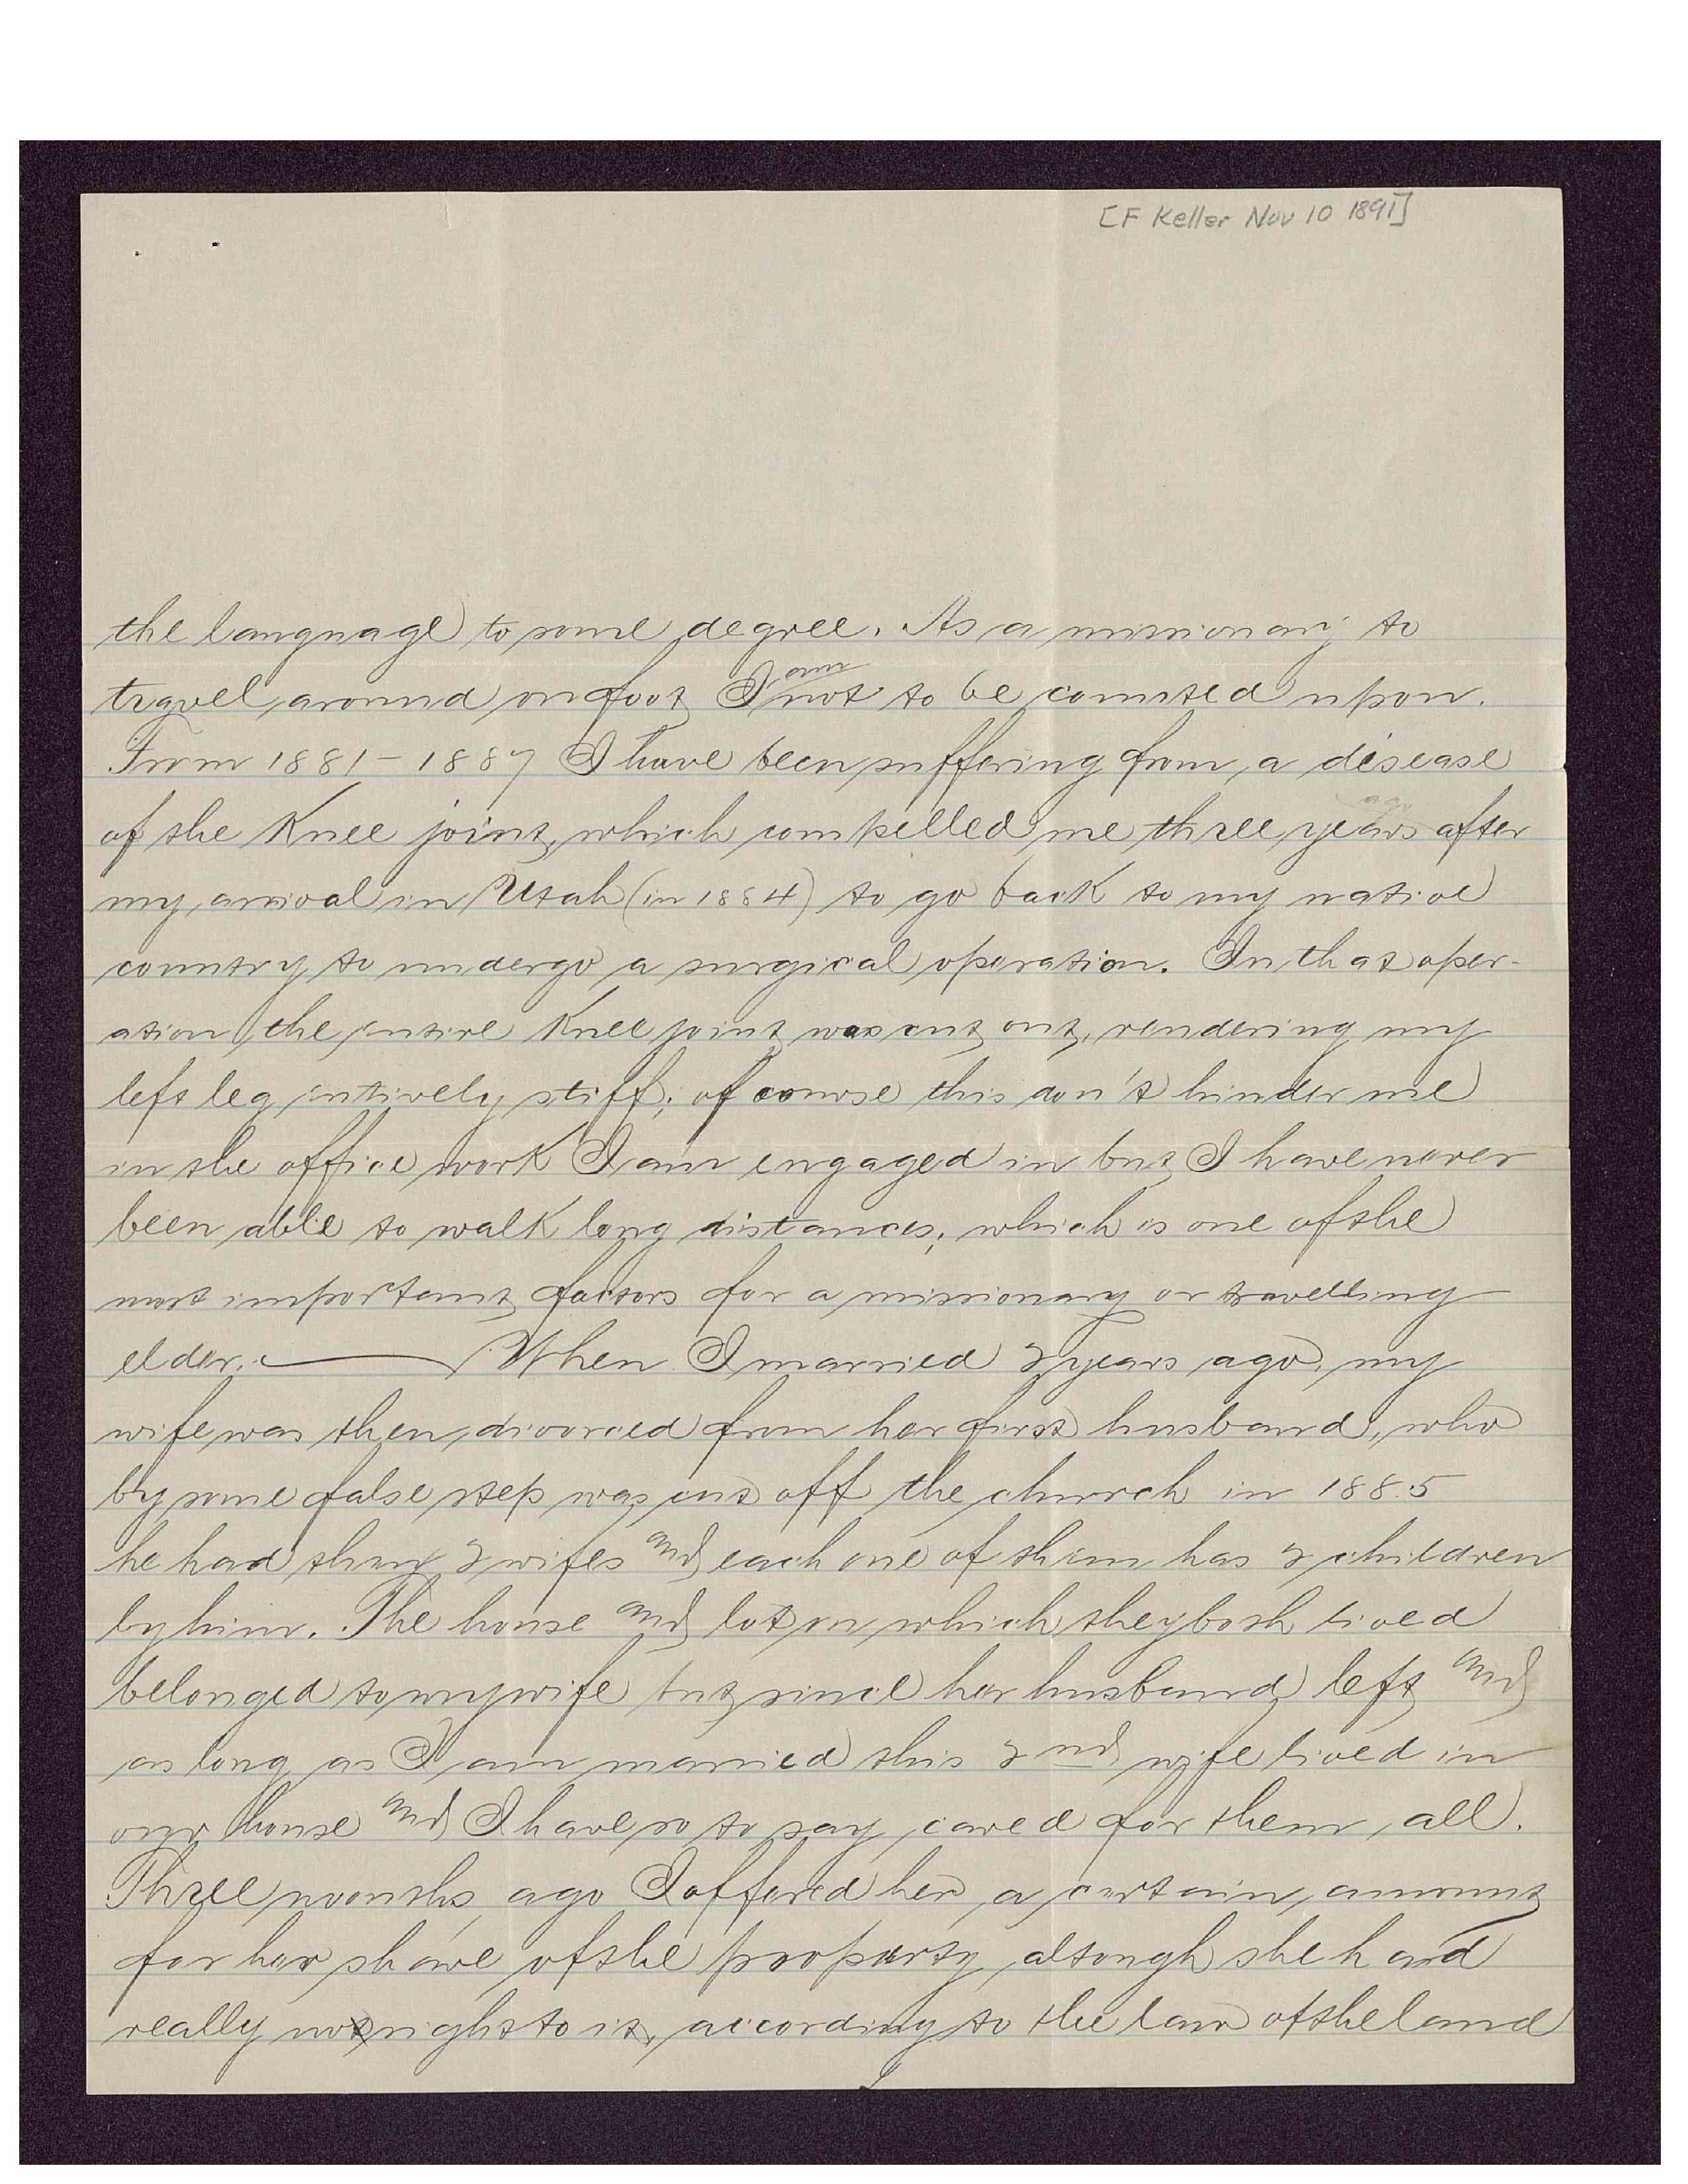 [F Keller Nov 10 1891]
the language to some degree. As a missionary to
travel around on foot I am not to be counted upon.
From 1881-1887 I have been suffering from a disease
of the Knee joint, which compelled me three years after
my arrival in Utah (in 1884) to go back to my native
country to undergo a surgical operation. In that oper-
ation the entire Knee joint was cut out, rendering my
left leg entirely stiff; of course this don't hinder me
in the office work I am engaged in but I have never
been able to walk long distances, which is one of the
most important factors for a missionary or travelling
elder. — When I married 2 years ago, my
wife was then divorced from her first husband, who
by some false step was cut off the church in 1885
he had then 2 wifes and each one of them has 2 children
by him. The house and lot on which they both lived
belonged to my wife but since her husband left and
as long as I am married this 2nd wife lived in
our house and I have so to say cared for them all.
Three months ago I offered her a certain amount
for her share of the property altough she had
really no right to it, according to the law of the land